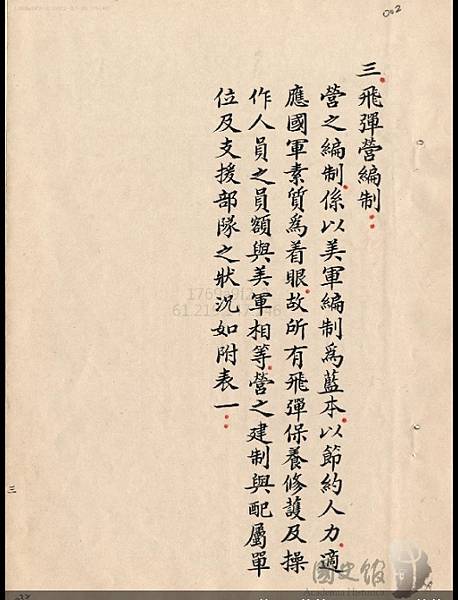 002
三、飛彈營編制：
營之編制，係以美軍編制為藍本，以節約人力，適
應國軍素質為着眼，故所有飛彈保養修護及操
作人員之員額與美軍相等，營之建制與配屬單
位及支援部隊之狀況如附表一：
三
國史館
Academia Historica